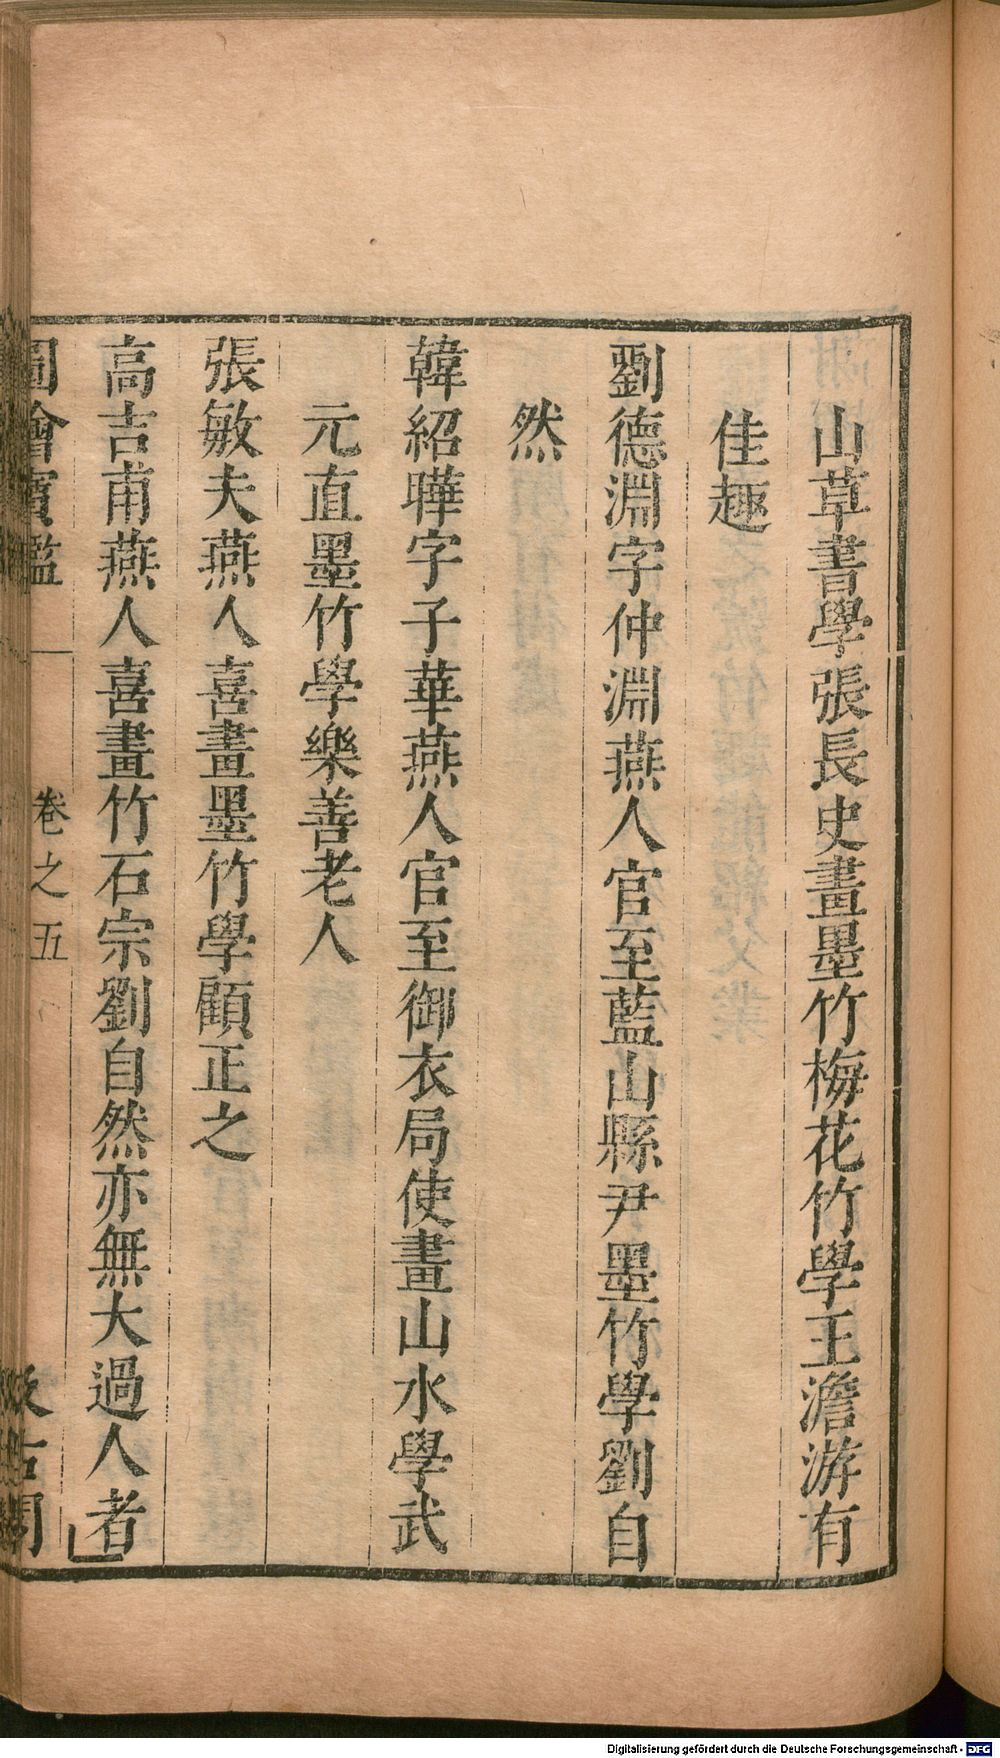 山草書學張長史畫墨竹梅花竹學王澹游有
佳趣
劉德淵字仲淵燕人官至藍山縣尹墨竹學劉自
然
韓紹曄字子華燕人官至御衣局使畫山水學武
元直墨竹學樂善老人
張敏夫燕人喜畫墨竹學顧正之
高吉甫燕人喜畫竹石宗劉自然亦無大過人者
圖繪寶鑑
卷之五
汲古閣
Digitalisierung gefördert durch die Deutsche Forschungsgemeinschaft - DFG